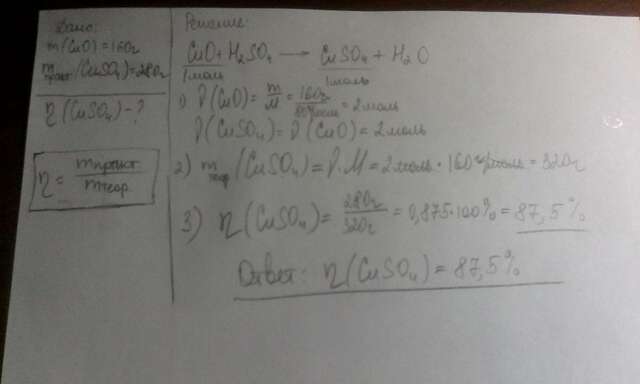 Дано:
m(CuO)=160г
m практ.(CuSO₄)=280г
η(CuSO₄)-?
η = mпракт. / mтеор.
Решение:
CuO + H₂SO₄ ⟶ CuSO₄ + H₂O
1моль 1моль
1) ν(CuO) = m/M = 160г / 80г/моль = 2моль
ν(CuSO₄) = ν(CuO) = 2моль
2) m теор.(CuSO₄) = ν·M = 2моль · 160г/моль = 320г
3) η(CuSO₄) = 280г/320г = 0,875·100% = 87,5%
Ответ: η(CuSO₄) = 87,5%